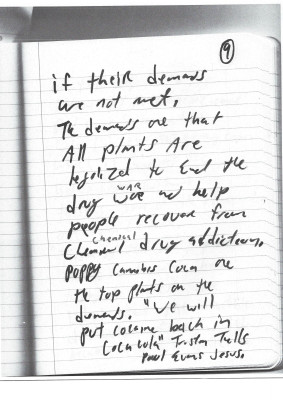 9
if their demands
are not met.
The demands are that
All plants Are
legalized to End the
WAR
drug and help
people recover from
chemical
drug addictions.
Poppy Cannabis Coca are
the top plants on the
demands. "We will
put cocaine back in
Coca Cola" Tells
Paul Evans Jesus.